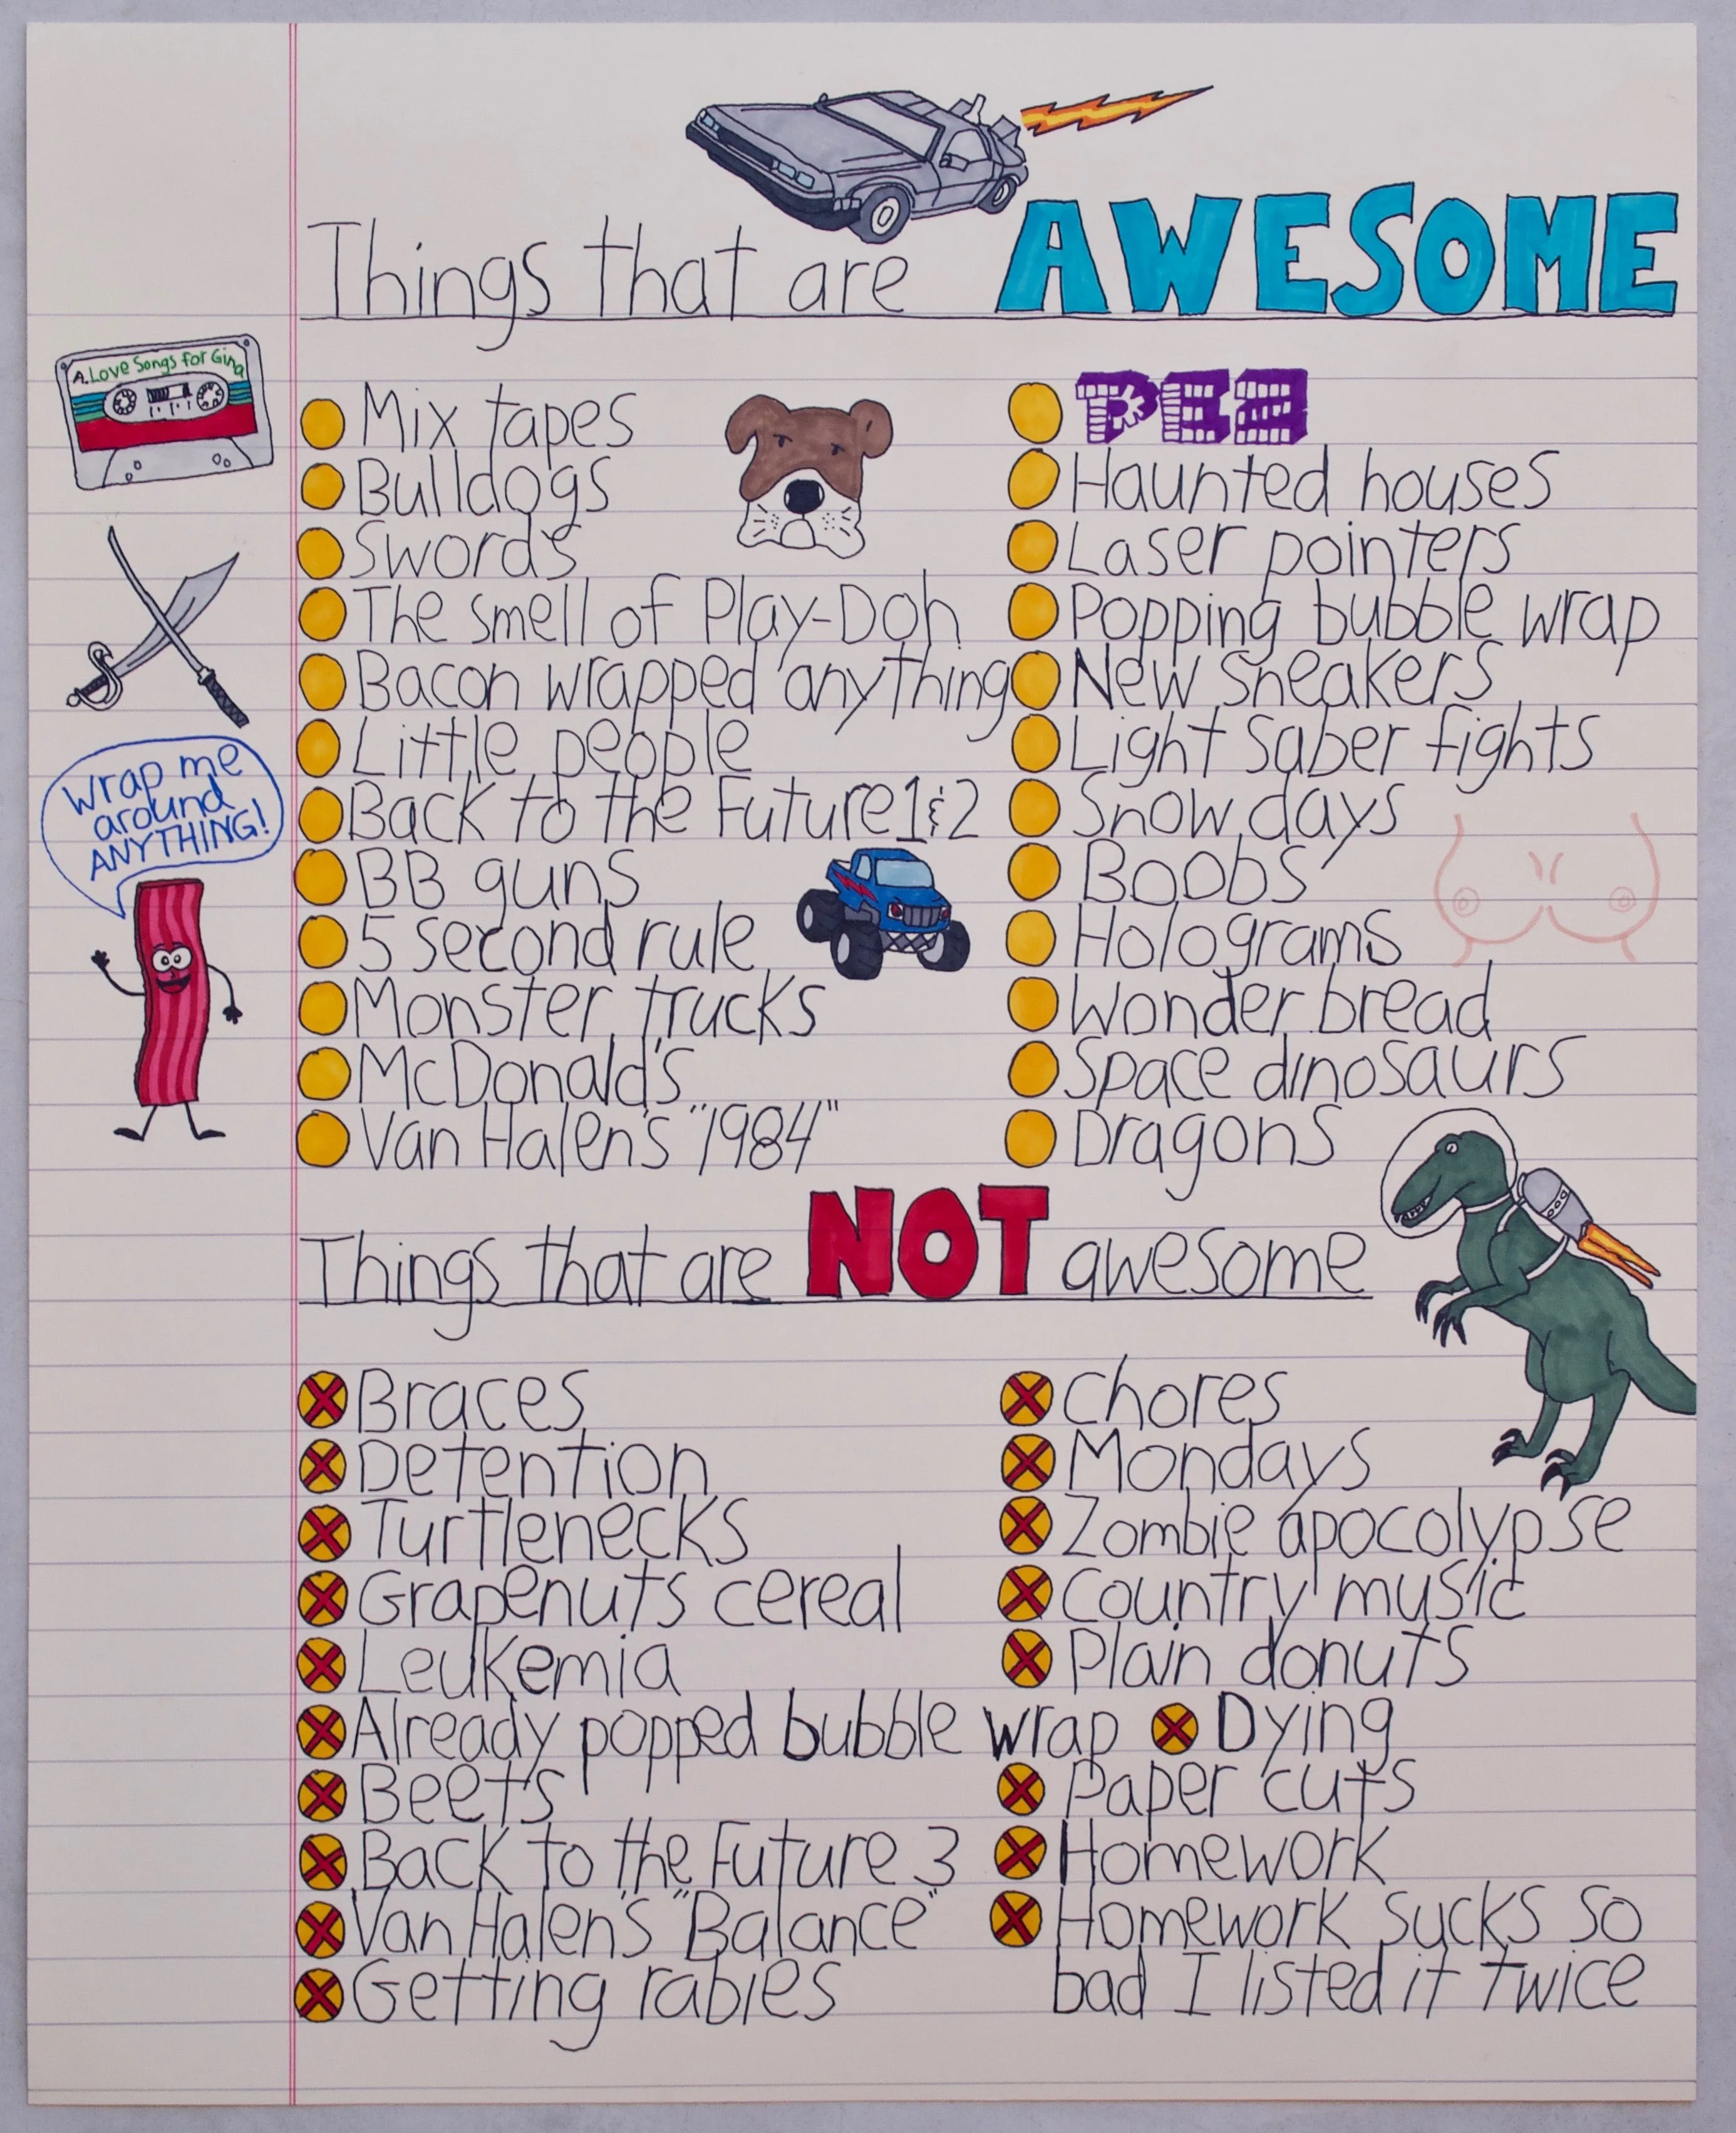 Things that are AWESOME
A. Love Songs for Gina
Wrap me
around
ANYTHING!
Mix tapes
Bulldogs
Swords
The smell of Play-Doh
Bacon wrapped anything
Little people
Back to the Future 1 & 2
BB guns
5 second rule
Monster trucks
McDonald's
Van Halen's "1984"
PEZ
Haunted houses
Laser pointers
Popping bubble wrap
New sneakers
Light saber fights
Snow days
Boobs
Holograms
Wonder bread
Space dinosaurs
Dragons
Things that are NOT awesome
Braces
Detention
Turtlenecks
Grapenuts cereal
Leukemia
Already popped bubble wrap
Beets
Back to the Future 3
Van Halen's "Balance"
Getting rabies
Chores
Mondays
Zombie apocolypse
Country music
Plain donuts
Dying
Paper cuts
Homework
Homework sucks so
bad I listed it twice